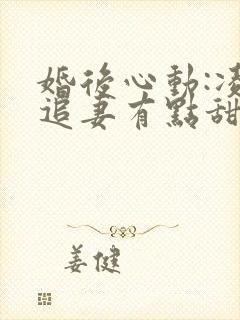 婚後心動:凌
追妻有點甜
姜健